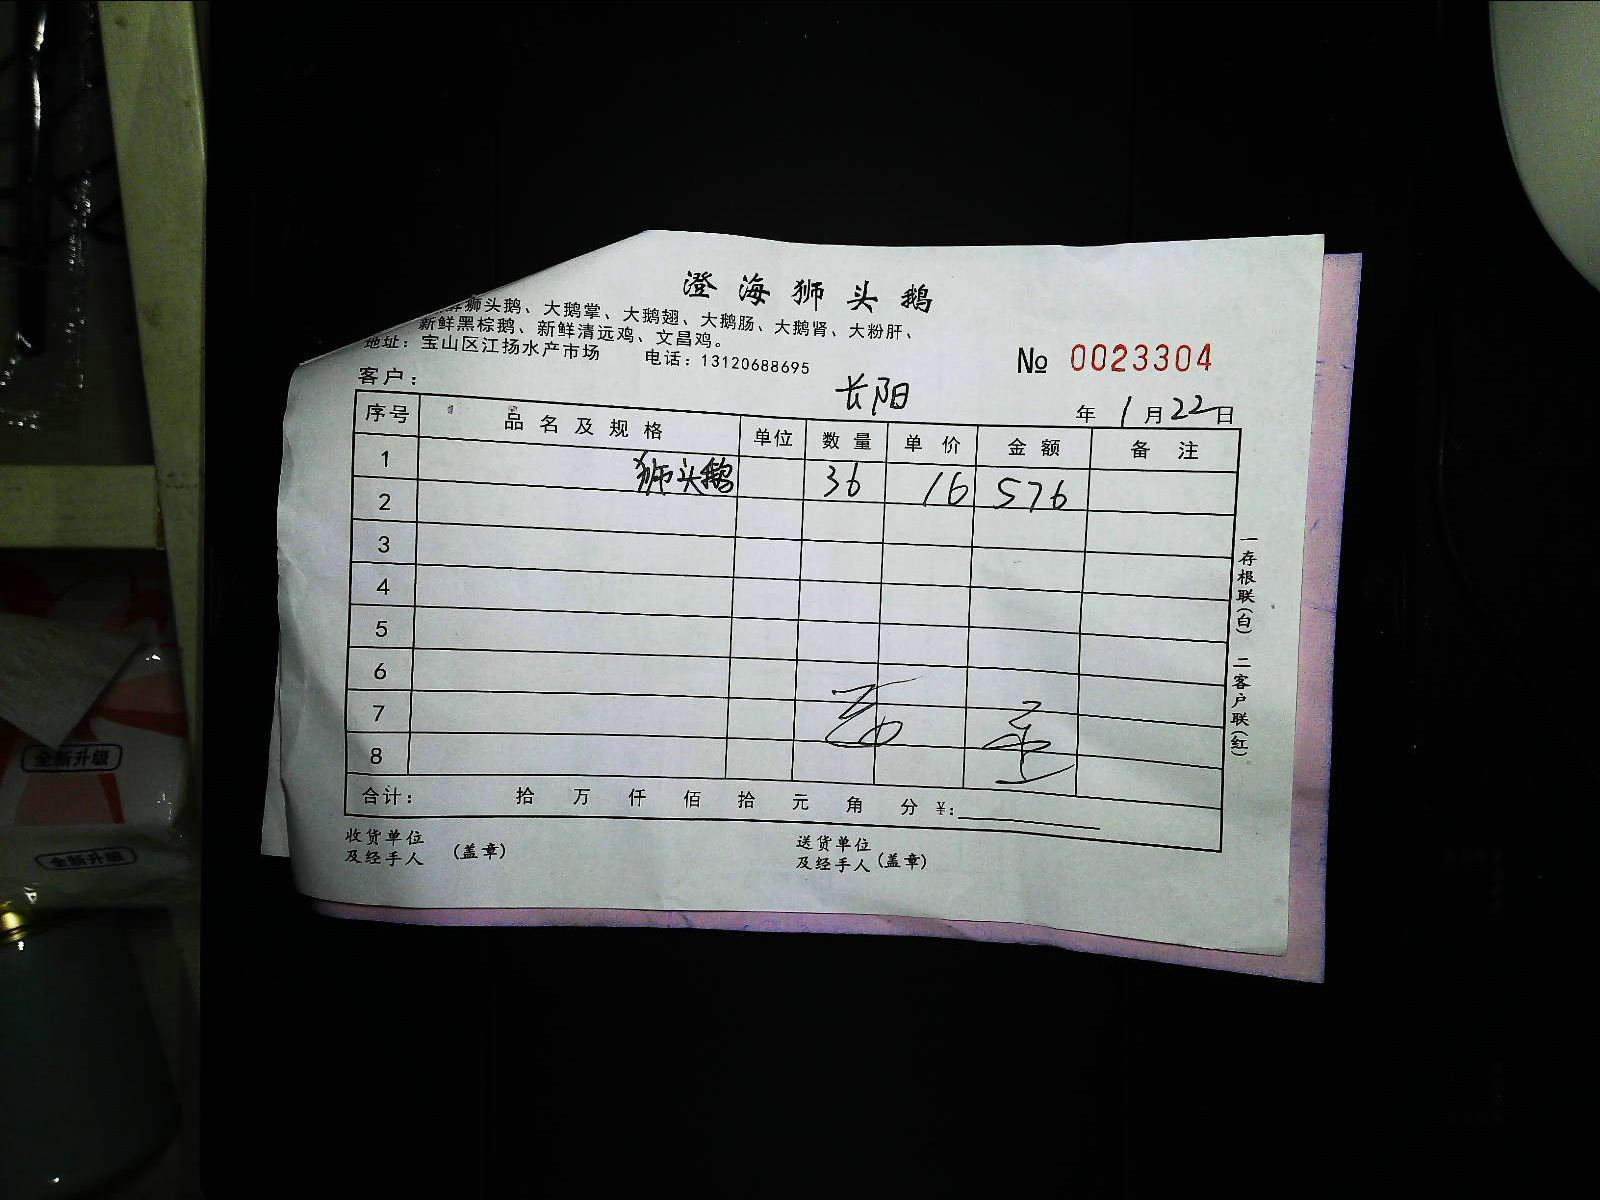 澄海狮头鹅
狮头鹅、大鹅掌、大鹅翅、大鹅肠、大鹅肾、大粉肝、
新鲜黑棕鹅、新鲜清远鸡、文昌鸡。
地址：宝山区江扬水产市场 电话：13120688695
№ 0023304
客户： 长阳
年 1月22日
序号 品名及规格 单位 数量 单价 金额 备注
1 狮头鹅 36 16 576
2
3
4
5
6
7
8
合计： 拾 万 仟 佰 拾 元 角 分 ¥：
收货单位
及经手人 (盖章)
送货单位
及经手人(盖章)
一存根联(白) 二客户联(红)
全新升级
全新升级